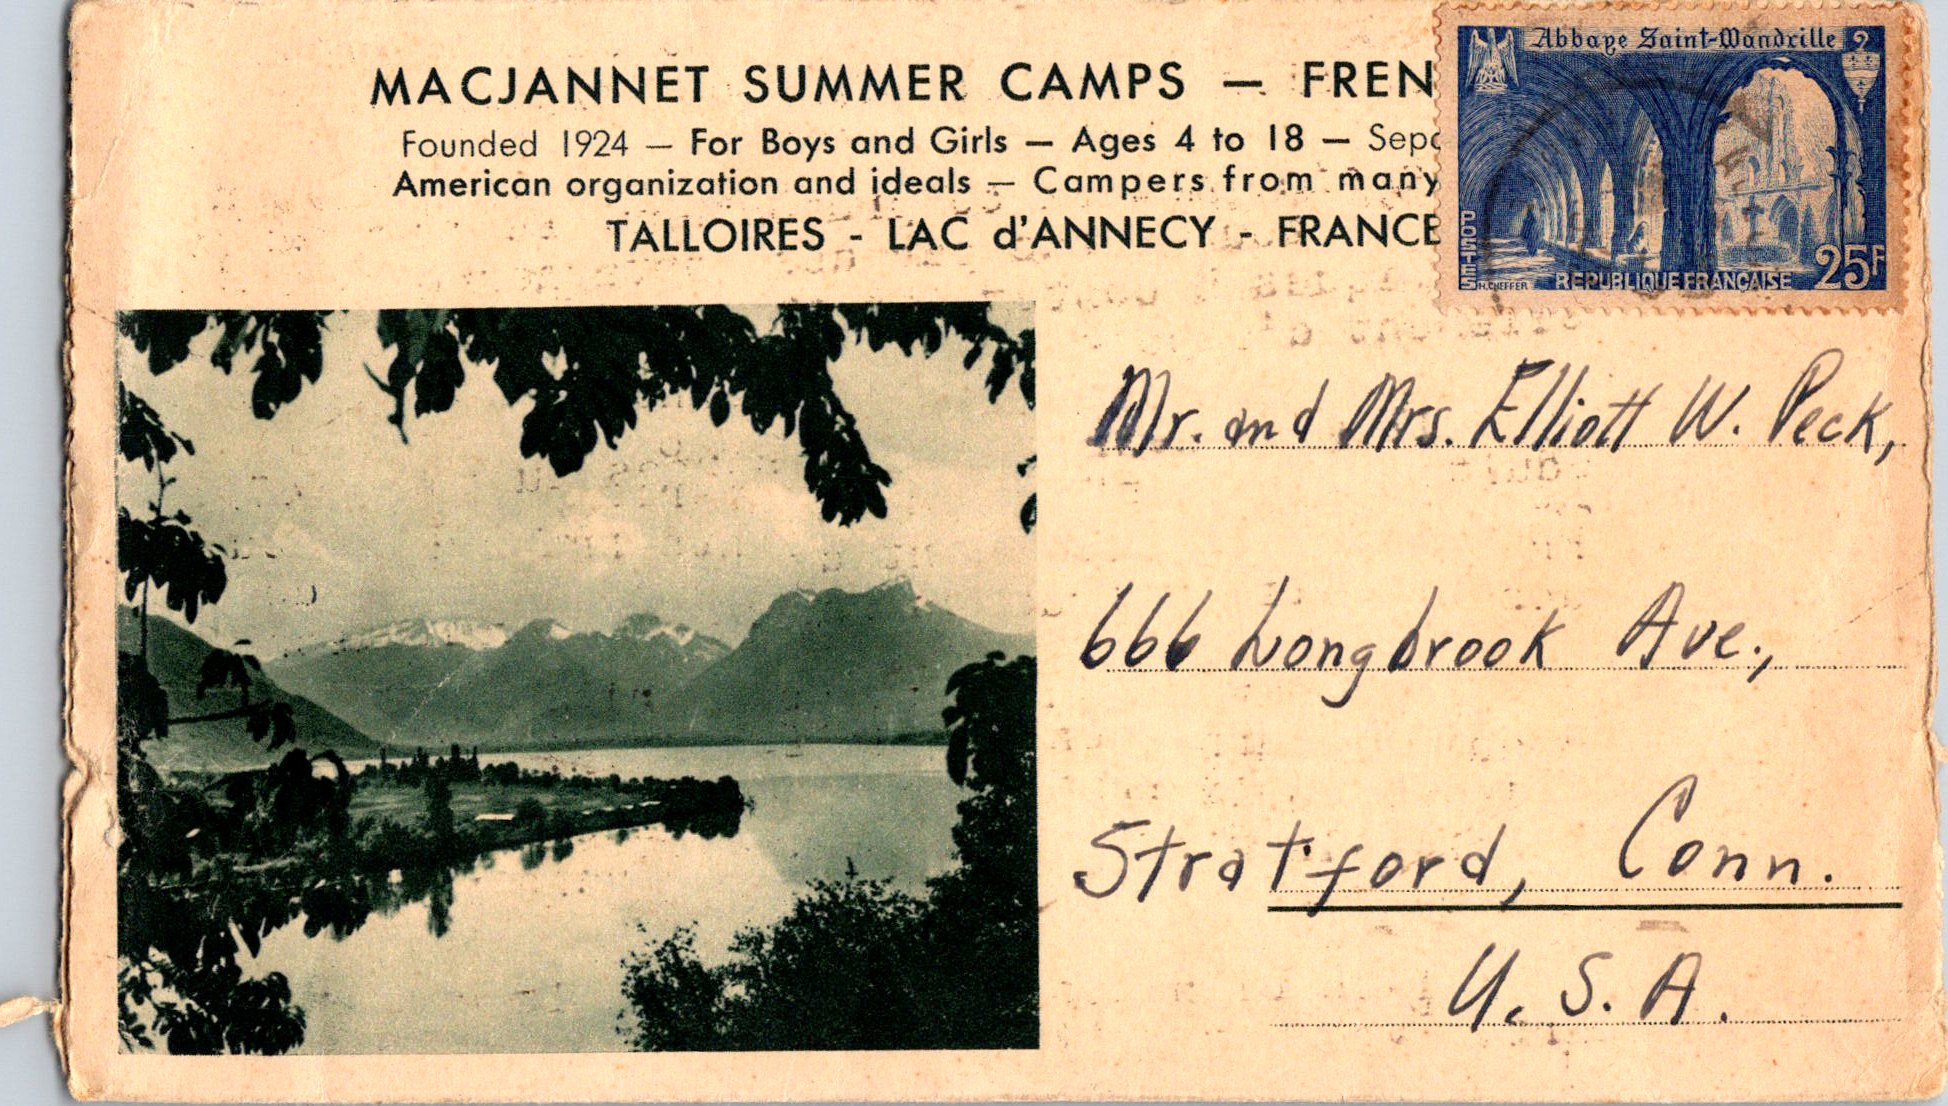 MACJANNET SUMMER CAMPS — FREN
Founded 1924 — For Boys and Girls — Ages 4 to 18 — Sepa
American organization and ideals — Campers from many
TALLOIRES - LAC d'ANNECY - FRANCE
Abbaye Saint-Wandrille
POSTES
H.CHEFFER
REPUBLIQUE FRANÇAISE
25F
Mr. and Mrs. Elliott W. Peck,
666 Longbrook Ave.,
Stratford, Conn.
U. S. A.